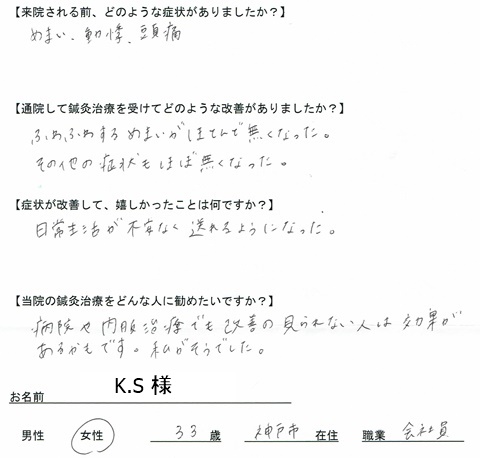 【来院される前、どのような症状がありましたか？】
めまい、動悸、頭痛
【通院して鍼灸治療を受けてどのような改善がありましたか？】
ふわふわするめまいがほとんで無くなった。
その他の症状もほぼ無くなった。
【症状が改善して、嬉しかったことは何ですか？】
日常生活が不安なく送れるようになった。
【当院の鍼灸治療をどんな人に勧めたいですか？】
病院や内服治療でも改善の見られない人は効果が
あるかもです。私がそうでした。
お名前 K.S 様
男性 女性 33 歳 神戸市 在住 職業 会社員